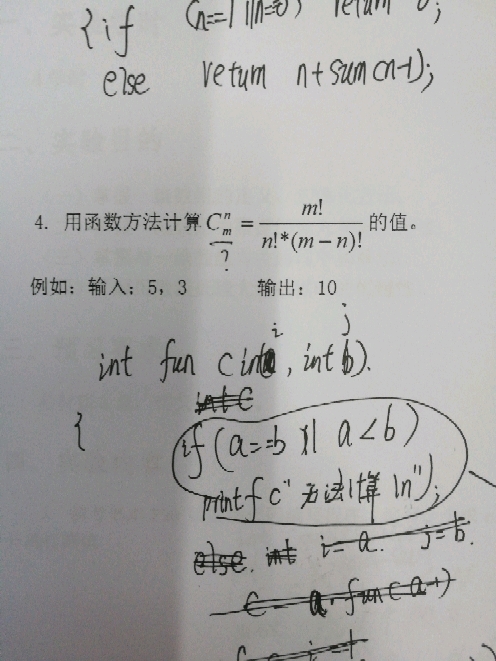 {if (n==1||n=0) return 0;
else return n+sum(n-1);
4. 用函数方法计算 C_m^n = m! / n!*(m-n)! 的值。
?
例如：输入：5，3 输出：10
i j
int fun (int , int b).
int c
{ if (a==b || a<b)
printf("无法计算\n");
else. int i=a. j=b.
fun(a-1)